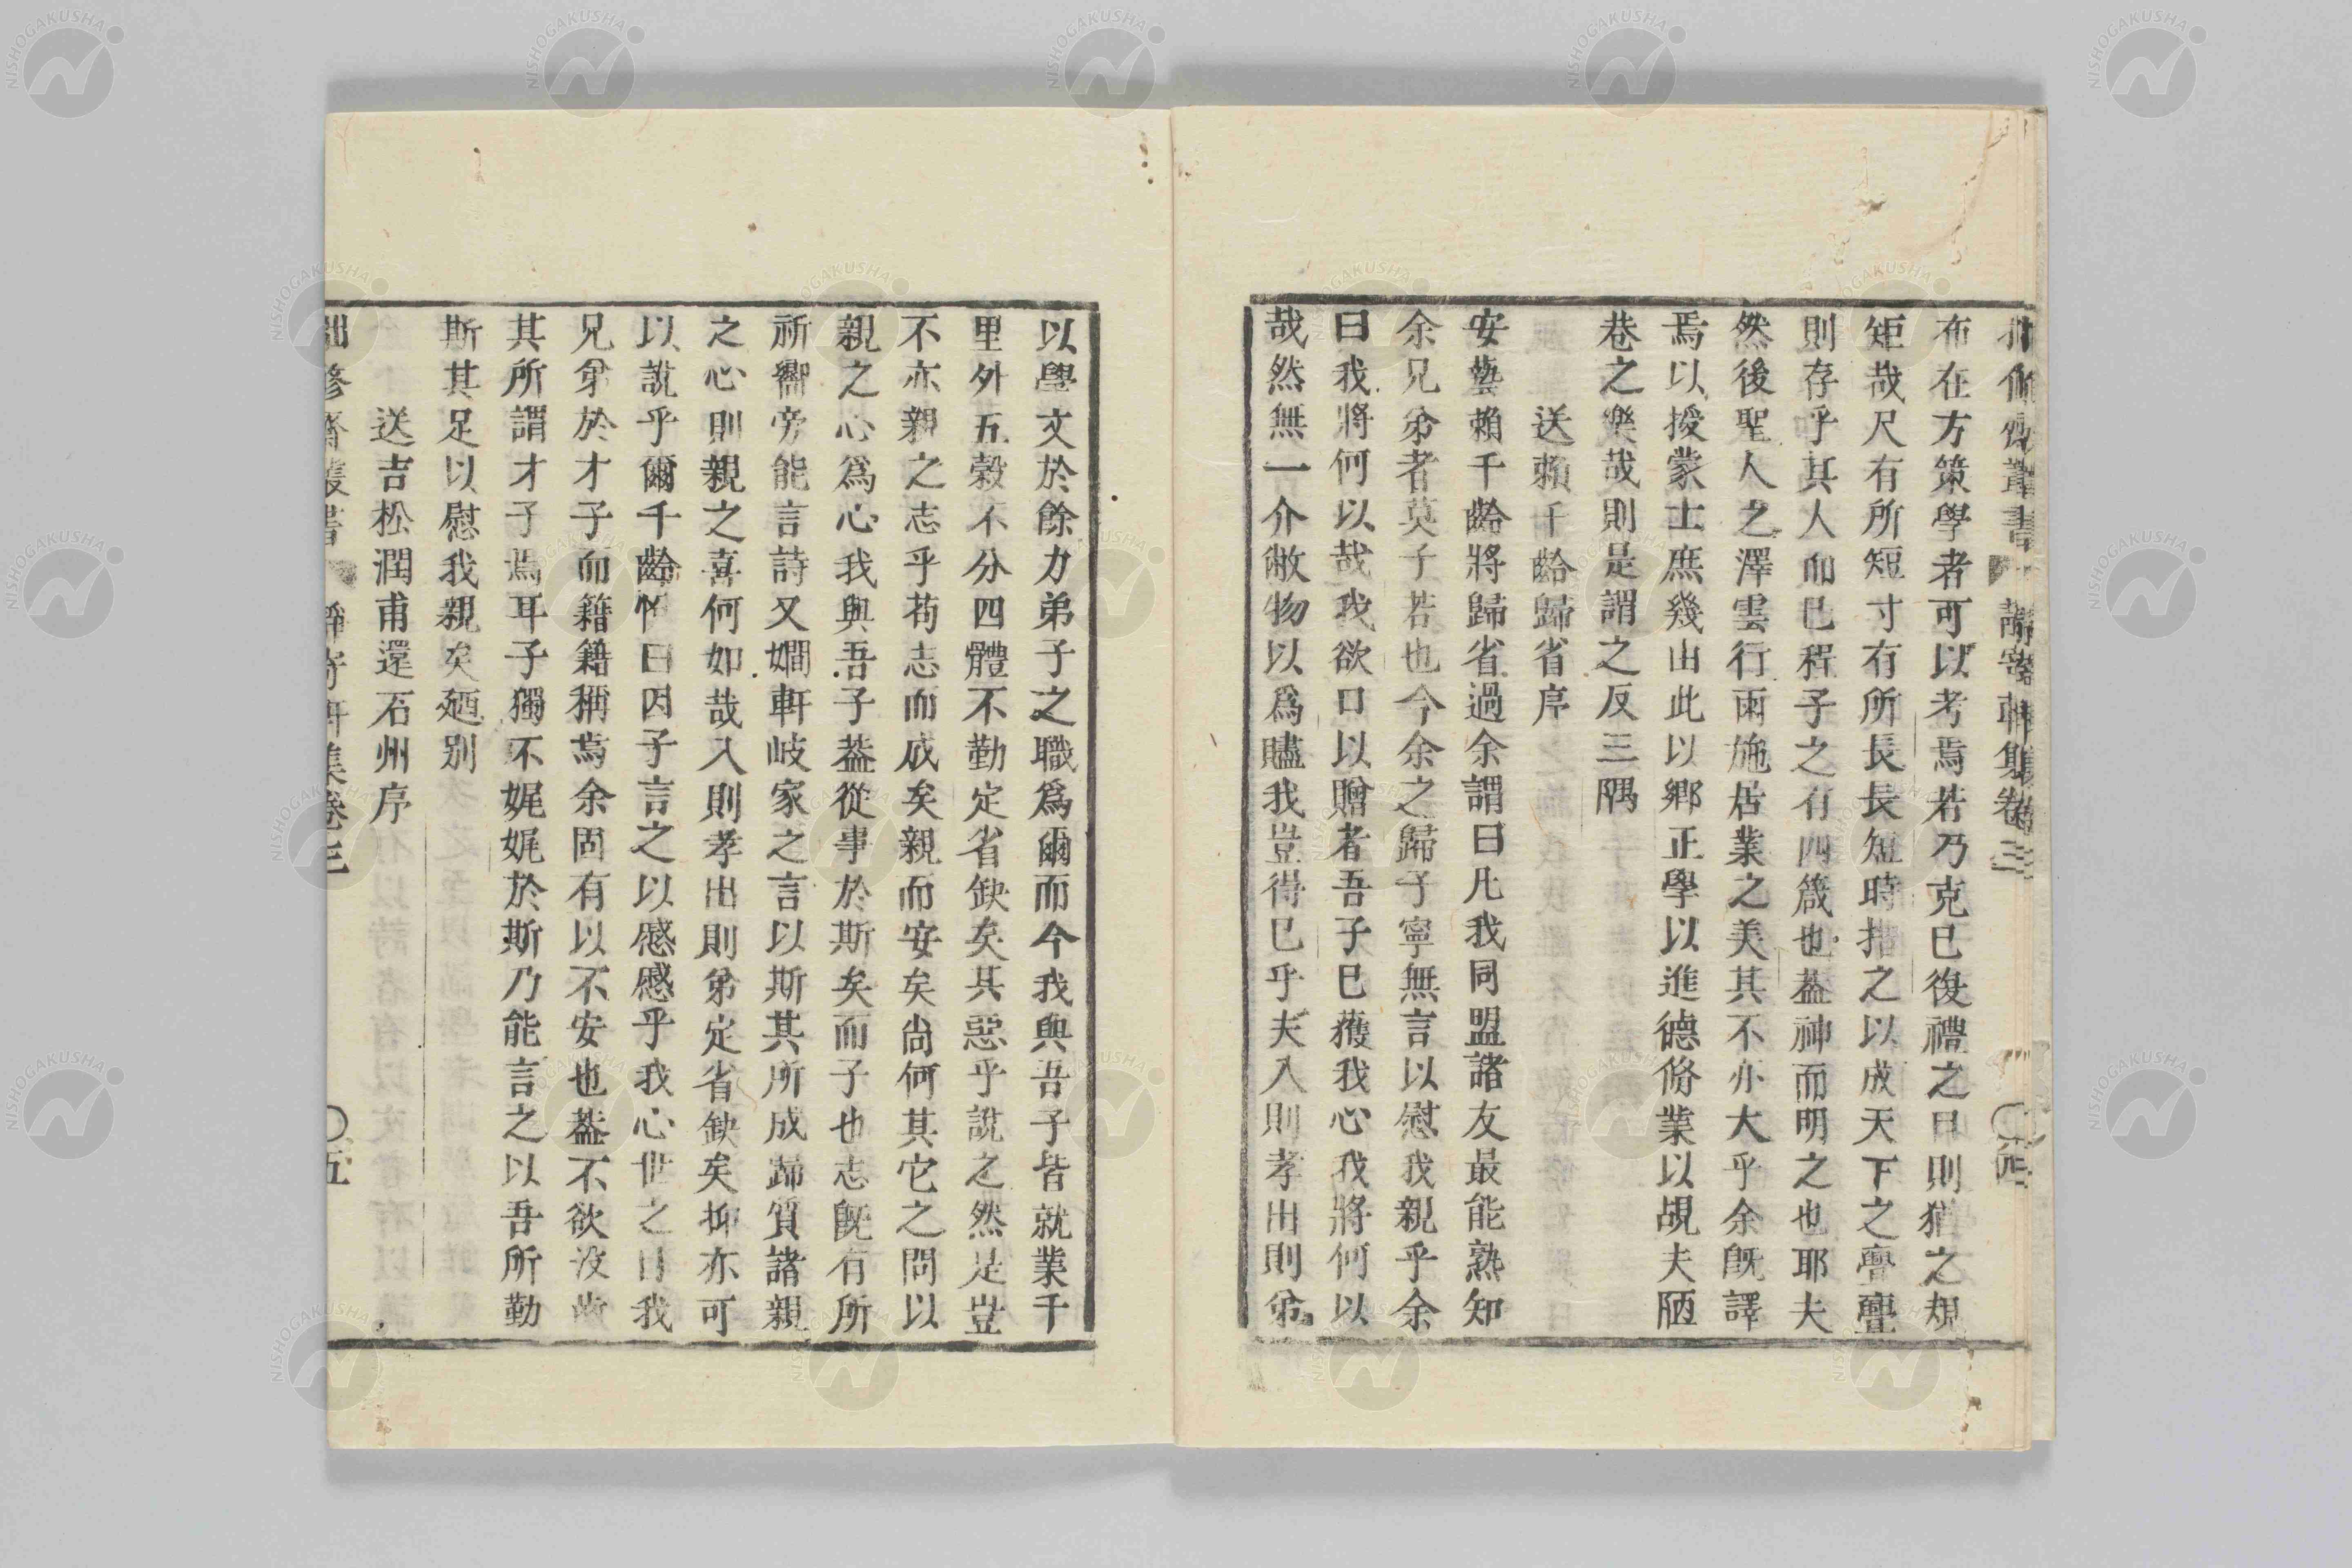 布在方策學者可以考焉若乃克已復禮之目則猶之規
矩哉尺有所短寸有所長長短時措之以成天下之亹亹
則存乎其人而已程子之有四箴也葢神而明之也耶夫
然後聖人之澤雲行雨施居業之美其不亦大乎余旣譯
焉以授蒙士庶幾由此以鄉正學以進德脩業以覘夫陋
巷之樂哉則是謂之反三隅
送賴千齡歸省序
安藝賴千齡將歸省過余謂曰凡我同盟諸友最能熟知
余兄弟者莫子若也今余之歸子寧無言以慰我親乎余
曰我將何以哉我欲口以贈者吾子已獲我心我將何以
哉然無一介敝物以爲贐我豈得已乎夫入則孝出則弟
以學文於餘力弟子之職爲爾而今我與吾子皆就業千
里外五穀不分四體不勤定省缺矣其惡乎說之然是豈
不亦親之志乎苟志而成矣親而安矣尙何其它之問以
親之心爲心我與吾子葢從事於斯矣而子也志旣有所
祈嚮旁能言詩又嫻軒岐家之言以斯其所成歸質諸親
之心則親之喜何如哉入則孝出則弟定省缺矣抑亦可
以說乎爾千齡怍曰因子言之以慼慼乎我心世之目我
兄弟於才子而籍籍稱焉余固有以不安也葢不欲沒齒
其所謂才子焉耳子獨不娓娓於斯乃能言之以吾所勤
斯其足以慰我親矣廼别
送吉松潤甫還石州序
集卷三 〇五